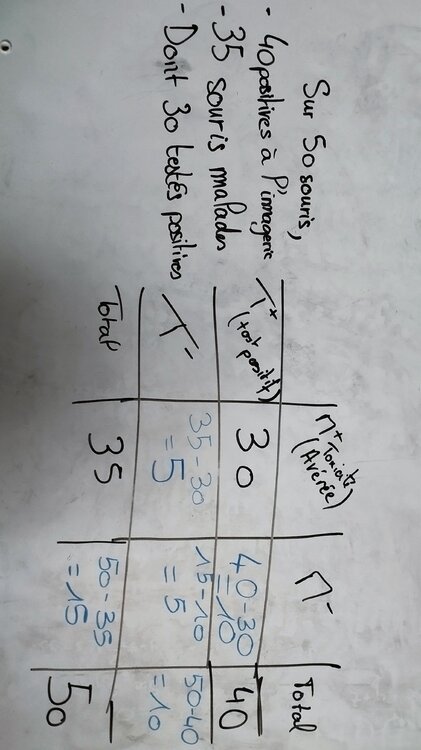 Sur 50 souris,
- 40 positives à l'imagerie
- 35 souris malades
- Dont 30 testés positives
M+ Toxicité (Avérée) M- Total
T+ (test positif) 30 40-30 =10 40
T- 35-30 =5 15-10 =5 50-40 =10
Total 35 50-35 =15 50